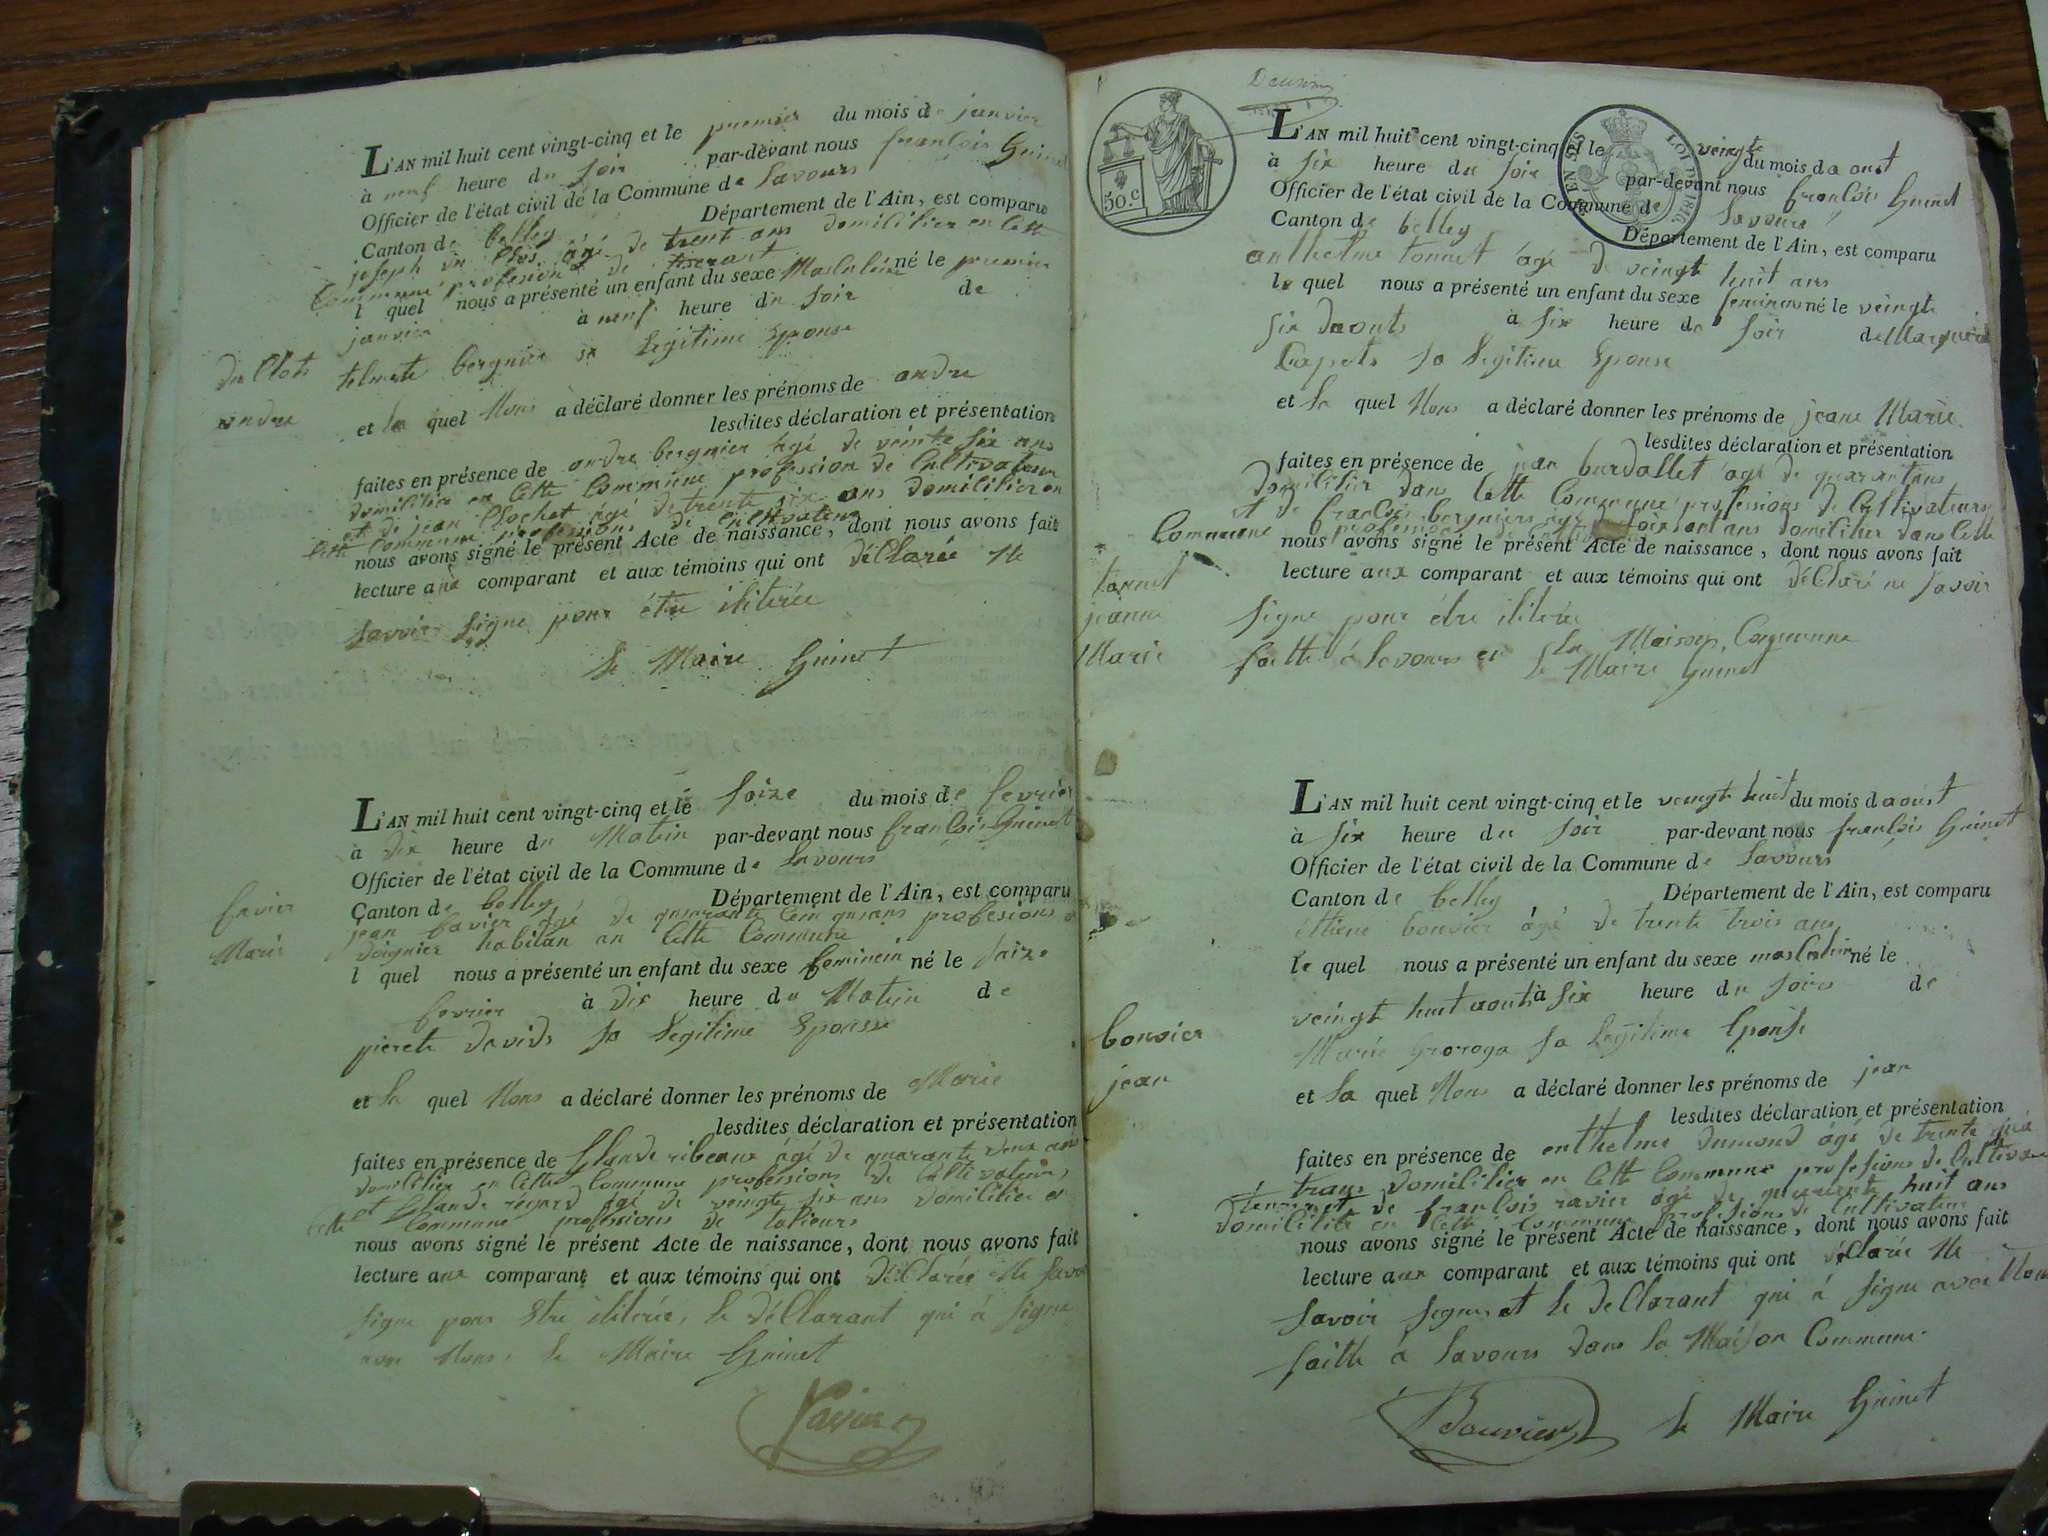 L'AN mil huit cent vingt-cinq et le premier du mois de janvier
à neuf heure du soir par-devant nous françois Guinet
Officier de l'état civil de la Commune de Savours
Canton de belley Département de l'Ain, est comparu
joseph du Clos agé de trent ans domicilier en cette
Commune profesion de
l quel nous a présenté un enfant du sexe Masculein né le premier
janvier à neuf heure du soir de
bergnier sa legitime Eponse
du Clots
andre
et la quel Nous a déclaré donner les prénoms de andre
lesdites déclaration et présentation
faites en présence de andre bergnier agé de veinte six ans
domicilier en cette Commune profession de Cultivateur
et de jean Clochet agé de trente six ans domicilier en
Cette Commune professions de Cultivateur
nous avons signé le présent Acte de naissance, dont nous avons fait
lecture aux comparant et aux témoins qui ont déClarée Ne
savoir signe pour étre iliterée
le Maire Guinet
L'AN mil huit cent vingt-cinq et le soize du mois de fevrier
à dix heure du Matin par-devant nous françois Guinet
Officier de l'état civil de la Commune de Savours
Canton de belley Département de l'Ain, est comparu
favier
Marie
jean favier agé de quarante cein quans profesions
habitan an Cette Commune
l quel nous a présenté un enfant du sexe feminein né le saize
fevrier à dix heure du Matin de
pierete davids sa legitime Eponse
et la quel Nous a déclaré donner les prénoms de Marie
lesdites déclaration et présentation
faites en présence de Glaude ribeaux âgé de quarante deux ans
domicilier en Cette Commune professions de Cultivateur,
et Glaude regard agé de veingte six ans domicilier en
Cette Commune professions de
nous avons signé le présent Acte de naissance, dont nous avons fait
lecture aux comparant et aux témoins qui ont déClarée Ne savoir
signe pour Etre iliterée, le déClarant qui à signe
avec Nous. le Maire Guinet
Favier
50.c
L'AN mil huit cent vingt-cinq et le veingte du mois d aout
à six heure du soir par-devant nous françois Guinet
Officier de l'état civil de la Commune de Savours
Canton de belley Département de l'Ain, est comparu
anthelme tonnet âgé de veingt huit ans
le quel nous a présenté un enfant du sexe né le veingte
six daouts à six heure du soir de
Capets sa legitime Eponse
et la quel Nous a déclaré donner les prénoms de jeane Marie
lesdites déclaration et présentation
faites en présence de jean burdallet agé de quarantans
domicilier dans Cette Commune professions de Cultivateurs
et de françois bergniers agé de soixant ans domicilier dans Cette
Commune professions de
nous avons signé le présent Acte de naissance, dont nous avons fait
lecture aux comparant et aux témoins qui ont déClaré ne savoir
tonnet
jeanne
Marie
signe pour étre iliterée
faitte à Savours en la Maison Commune
le Maire Guinet
L'AN mil huit cent vingt-cinq et le veingt huit du mois d aoust
à six heure du soir par-devant nous françois Guinet
Officier de l'état civil de la Commune de Savours
Canton de belley Département de l'Ain, est comparu
ettiene bouvier âgé de trente trois ans
le quel nous a présenté un enfant du sexe masculein né le
veingt huit aout à six heure du soir de
Marie sa Legitime Eponse
bouvier
jean
et la quel Nous a déclaré donner les prénoms de jean
lesdites déclaration et présentation
faites en présence de enthelme dumond âgé de trente
domicilier en Cette Commune professions de
de françois ravier âgé de quarente huit ans
domicilite en Cette Commune professions de Cultivateur
nous avons signé le présent Acte de naissance, dont nous avons fait
lecture aux comparant et aux témoins qui ont déClarée Ne
savoir signe, et le deClarant qui à signe avec Nous
faitte à Savours dans la Maison Commune.
Bouvier le Maire Guinet